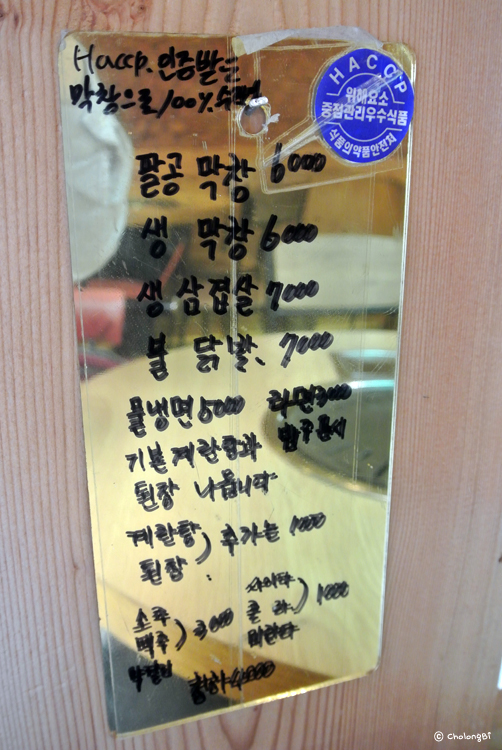 Haccp. 인증받은
막창으로 100%
HACCP
위해요소
중점관리우수식품
식품의약품안전처
팔공 막창 6000
생 막창 6000
생 삼겹살 7000
불 닭발 7000
물냉면 5000 라면 3000
기본 계란탕과
된장 나옵니다
계란탕
된장 ) 추가는 1000
소주
맥주 ) 3000
사이다
콜라 ) 1000
환타
4000
© CholongBi